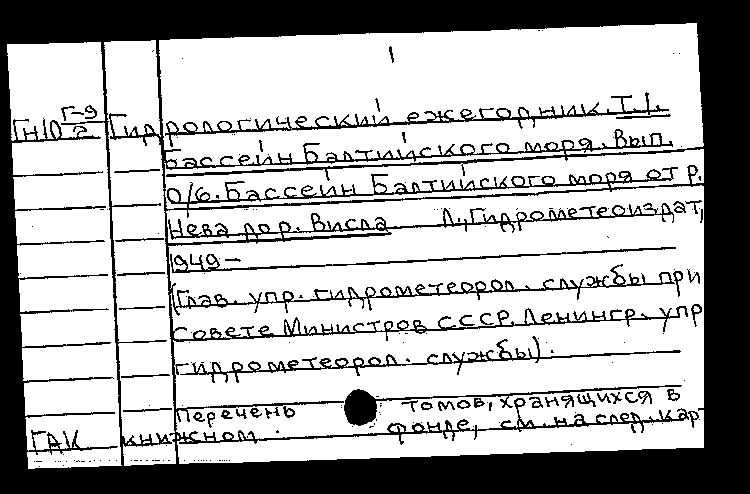 1
Г-9
ГН10 2 Гидрологический ежегодник. Т.1.
Бассейн Балтийского моря. Вып.
0/6. Бассейн Балтийского моря от р.
Нева до р. Висла Л., Гидрометеоиздат,
1949-
(Глав. упр. гидрометеорол. службы при
Совете Министров СССР. Ленингр. упр
гидрометеорол. службы).
Перечень томов, хранящихся в
ГАК книжном фонде, см. на след. кар